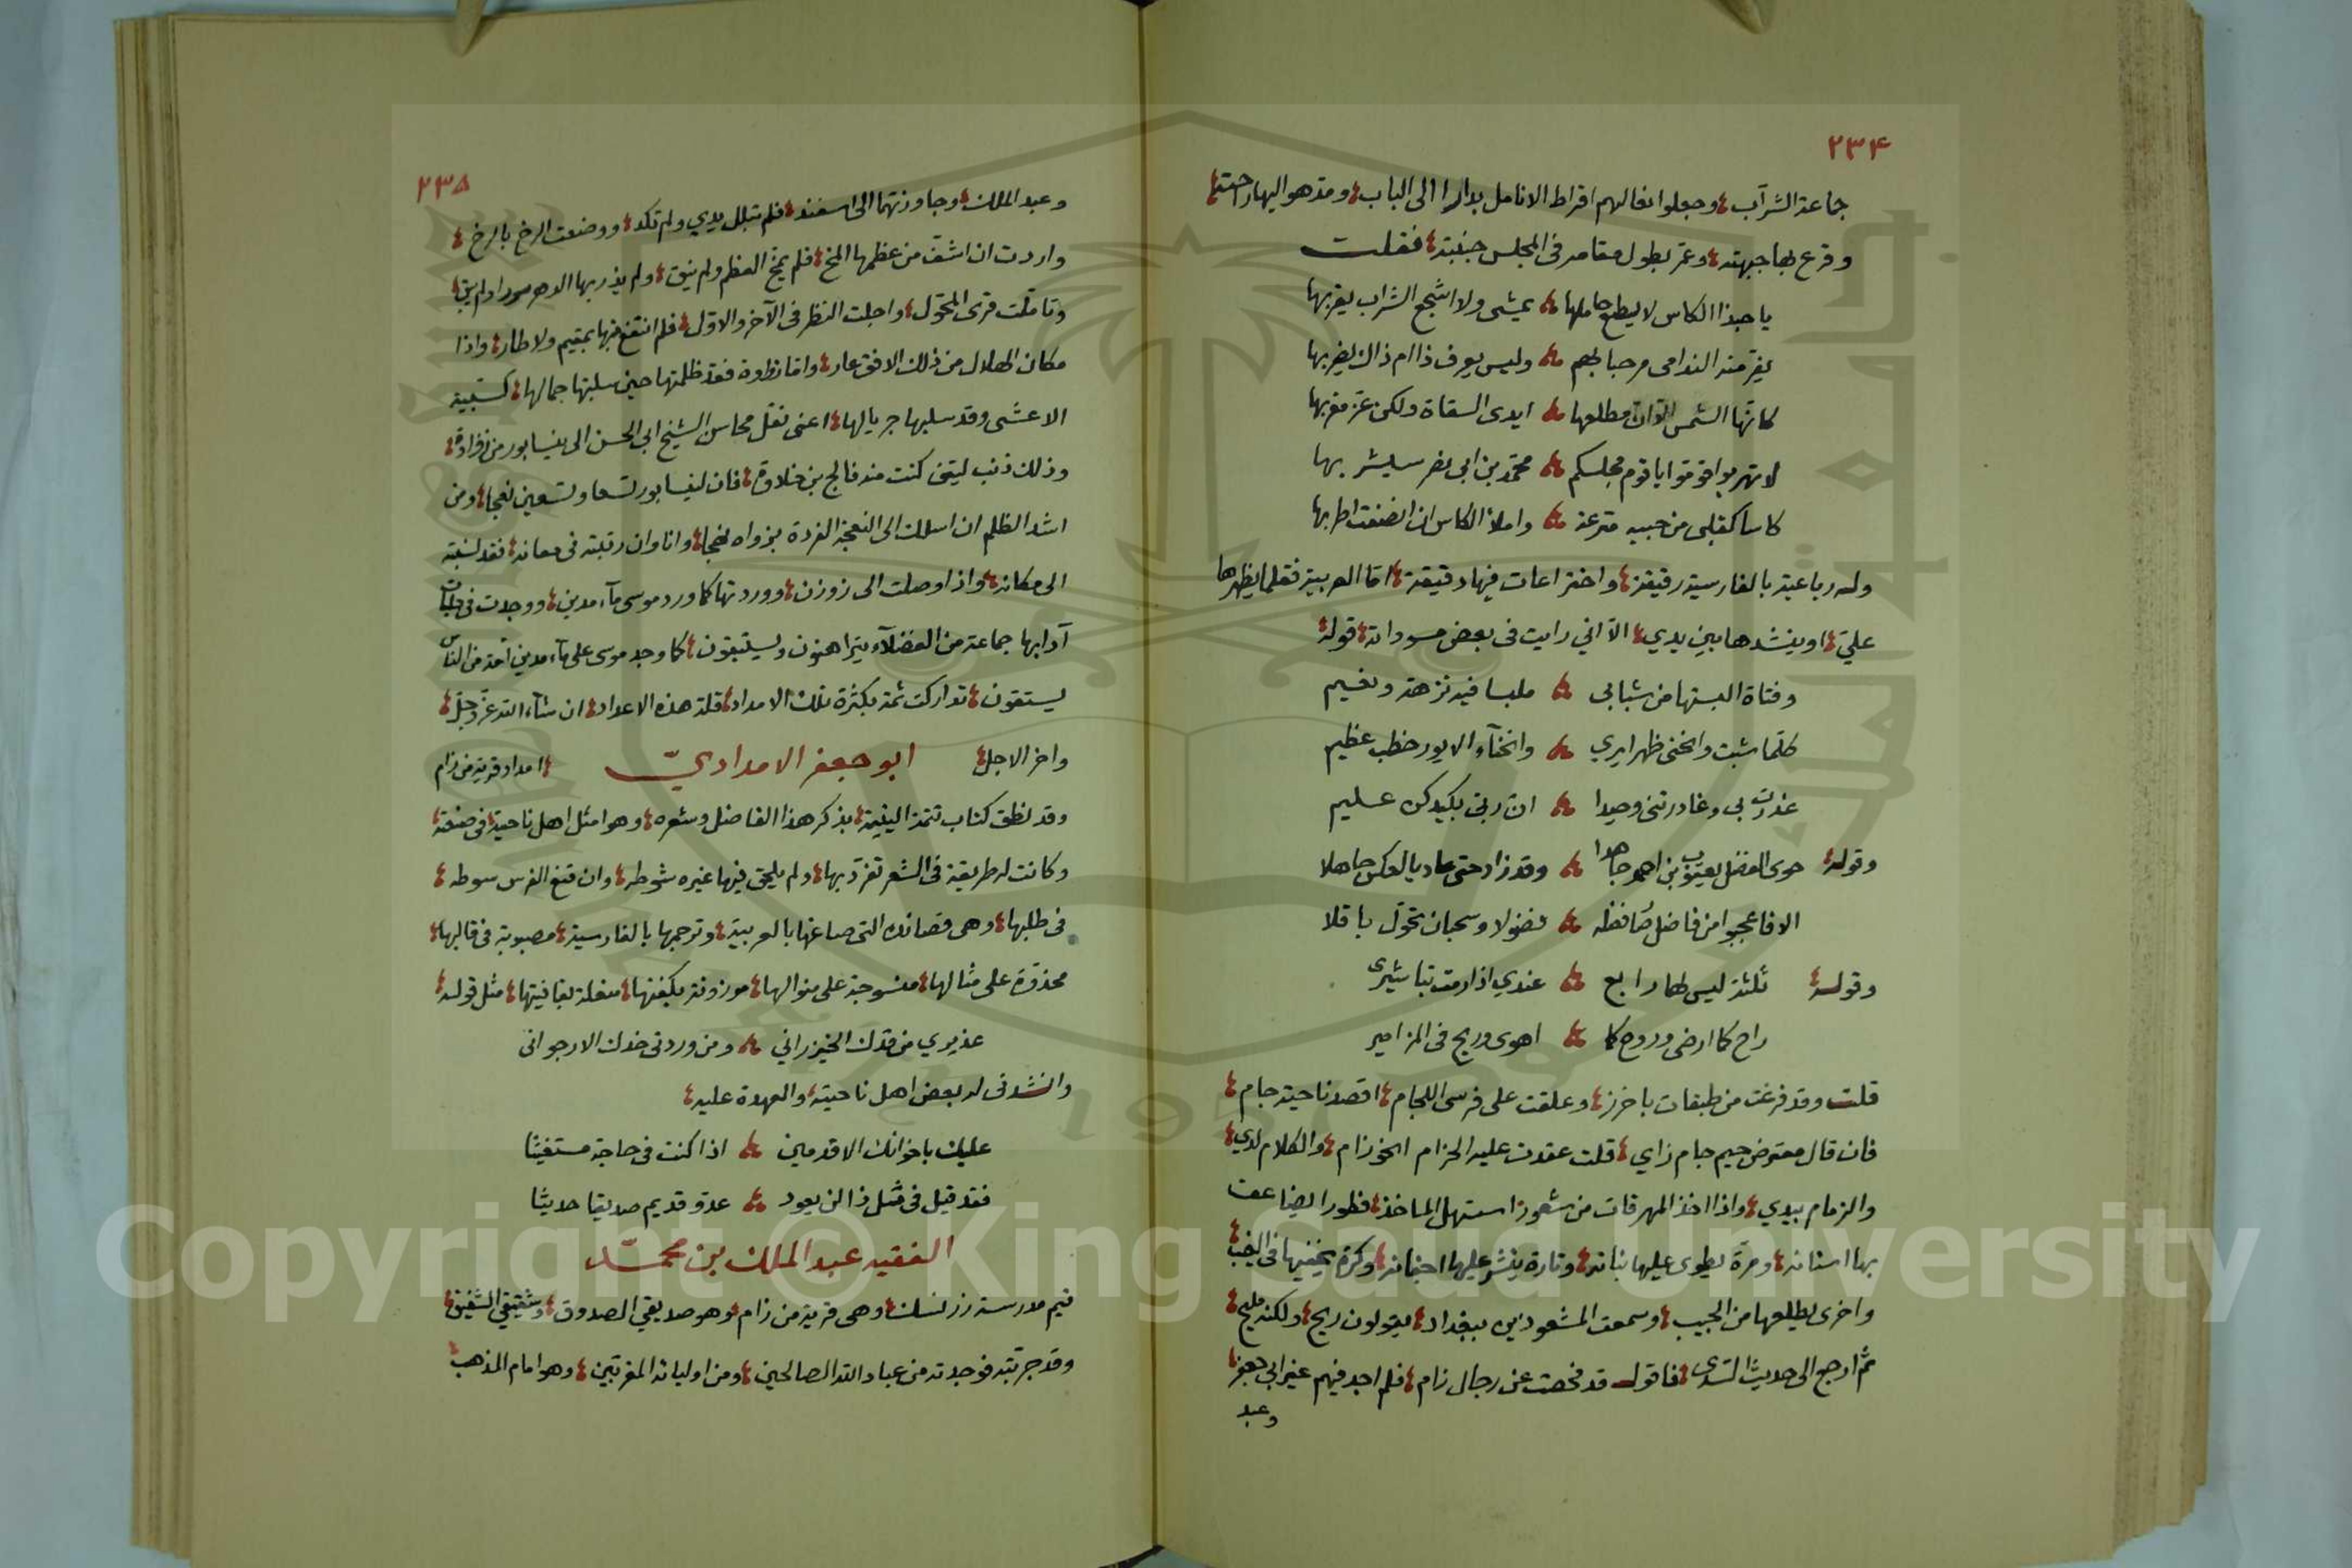 ٢٣٤
جماعة الشرآب وجعلوا نعالهم اقراط الانامل بدارا الى الباب ومد هو اليها راحته
وقرع بها جبهته وعمّ بطول مقامه فى المجلس فقلت
يا حبذا الكاس لا يسطيع حاملها يمشى ولا اشجع الشراب يقربها
يفرّ منه الندامى مرحبا بهم وليس يعرف ذا ام ذاك يضربها
كانّها الشمس الّا انّ مطلعها ايدى السقاة ولكن عزّ مغربها
لا تهربوا فوقوا يا قوم مجلسكم محمّد بن ابى نصر سيشربها
كاسا كقلبى من حبيه مترعة واملأ الكاس ان انصفت اطربها
وله رباعية بالفارسية رقيقة واختراعات فيها دقيقة امّا العربية فقلما يظهرها
عليّ او ينشدها بين يدي الّا اني رايت فى بعض مسوداته قوله
وفتاة البستها من شبابى ملبسا فيه نزهة ونعيم
كلّما شبت وانحنى ظهر ايري وانحنآء الايور خطب عظيم
غدرت بى وغادرتنى وحيدا انّ ربّى بكيدكن عليم
وقوله حوى الفضل يعقوب بن احمد جاهدا وقد زاد حتى عاد بالعكس جاهلا
الا فاعجبوا من فاضل صار فضله فضولا وسحبان تحوّل باقلا
وقوله ثلثة ليس لها رابع عندي اذا رمت تباشيرى
راح كما ارضى وروح كما اهوى وريح فى المزامير
قلت وقد فرغت من طبقات باخرز وعلقت على فرسى اللجام اقصد ناحية جام
فان قال معترض جيم جام زاي قلت عقدت عليه الحزام انحو زام والكلام لدي
والزمام بيدي واذا اخذ المهرقات من شعوذ استهل الماخذ فطورا يضاعف
بها اسنانه ومرّة يطوى عليها بنانه وتارة ينشر عليها اجفانه وكرّة يخفيها فى الغيب
واخرى يطلعها من الجيب وسمعت المشعوذين ببغداد يقولون ريح ولكنه مليح
ثمّ ارجع الى حديث السرى فاقول قد فحصت عن رجال زام فلم اجد فيهم غير ابى جعفر
وعبد
٢٣٥
وعبد الملك وجاوزتهما الى اسفند فلم تبلل يدي ولم تكد ووضعت الرخ بالرخ
واردت ان اشقّ من عظمها المخ فلم يمخّ العظم ولم ينق ولم يذر بها الدهر سورا ولم يبق
وتأملت قرى المحوّل واجلت النظر فى الآخر والاوّل فلم انتفع منها بمقيم ولا طار واذا
مكان الهلال من ذلك الافق عار وامّا نظوة فقد ظلمتها حين سلبتها جمالها كسبية
الاعشى وقد سلبها جريالها اعنى نقل محاسن الشيخ ابى الحسن الى نيسابور من افراده
وذلك ذنب ليتنى كنت منه فالج بن خلاوة فان لنيسابور تسعا وتسعين نعجا ومن
اشد الظلم ان اسلك الى النعجة الفردة بزواه نهجا وانا وان رتبته فى معانه فقد نسبته
الى مكانه واذا وصلت الى زوزن ووردتها كما ورد موسى مآء مدين ووجدت فى جلباب
آدابها جماعة من الفضلآء يتراهنون ويستبقون كما وجد موسى على مآء مدين امّة من الناس
يستقون تداركت ثمة بكثرة تلك الامداد قلة هذه الاعداد ان شآء الله عزّ وجلّ
واخر الاجل ابو جعفر الامداديّ امداد قرية من زام
وقد نطق كتاب تتمة اليتيمة بذكر هذا الفاضل وشعره وهو امثل اهل ناحيته فى صنعته
وكانت له طريقة فى الشعر تفرّد بها ولم يلحق فيها غيره شوطه وان قنع الفرس سوطه
فى طلبها وهى قصائده التى صاغها بالعربية وترجمها بالفارسية مصبوبة فى قالبها
محذوّة على مثالها منسوجة على منوالها موزونة بكفتها منعلة بقافيتها مثل قوله
عذيري من قدك الخيزراني ومن وردتى خدك الارجوانى
وانشدنى له بعض اهل ناحيته والعهدة عليه
عليك باخوانك الاقدمين اذا كنت فى حاجة مستغيثا
فقد قيل فى مثل ذا لن يعود عدو قديم صديقا حديثا
الفقيه عبد الملك بن محمّد
قيم مدرسة رزنسك وهى قرية من زام وهو صديقي الصدوق وشقيقي الشفيق
وقد جرّبته فوجدته من عباد الله الصالحين ومن اوليائه المقرّبين وهو امام المذهب
Copyright © King Saud University